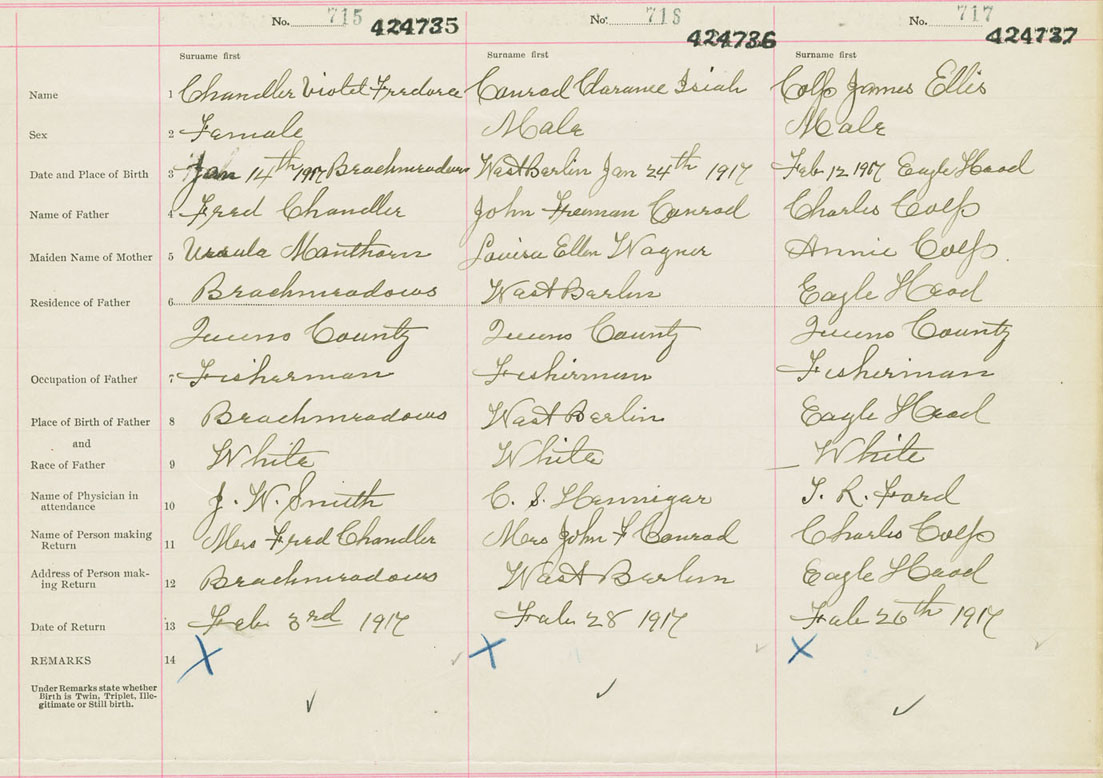 No. 715 424735 No. 716 424736 No. 717 424737
Surname first Surname first Surname first
Name 1 Chandler Violet Fredorea Conrad Clarance Isiah Colp James Ellis
Sex 2 Female Male Male
Date and Place of Birth 3 Jan 14th 1917 Beachmeadows West Berlin Jan 24th 1917 Feb 12 1917 Eagle Head
Name of Father 4 Fred Chandler John Freeman Conrad Charles Colp
Maiden Name of Mother 5 Ursula Manthorn Lovisa Ellen Wagner Annie Colp
Residence of Father 6 Beachmeadows West Berlin Eagle Head
Queens County Queens County Queens County
Occupation of Father 7 Fisherman Fisherman Fisherman
Place of Birth of Father 8 Beachmeadows West Berlin Eagle Head
and
Race of Father 9 White White White
Name of Physician in
attendance 10 J. W. Smith C. S. Hennigar T. R. Ford
Name of Person making
Return 11 Mrs Fred Chandler Mrs John F Conrad Charles Colp
Address of Person mak-
ing Return 12 Beachmeadows West Berlin Eagle Head
Date of Return 13 Feb 3rd 1917 Feb 28 1917 Feb 26th 1917
REMARKS 14 X X X
Under Remarks state whether
Birth is Twin, Triplet, Ille-
gitimate or Still birth.